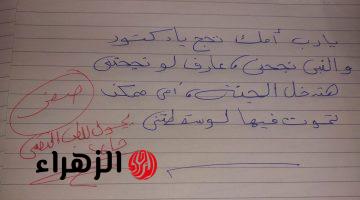 يارب أمك تحج يادكتور
والنبى نجحنى، عارف لو نجحتنى
هتدخل الجنة، أمى ممكن
تموت فيها لو سقطتنى
صفر
يحول للطب النفسى
الزهراء